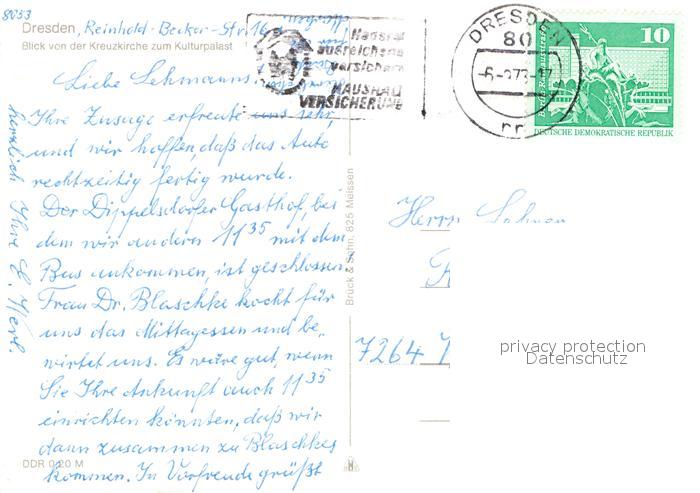 8053
Dresden, Reinhold-Becker-Str. 16
Blick von der Kreuzkirche zum Kulturpalast
Liebe Lehmanns,
Ihre Zusage erfreute uns sehr,
und wir hoffen, daß das Auto
rechtzeitig fertig wurde.
Der Dippelsdorfer Gasthof, bei
dem wir anderen 11³⁵ mit dem
Bus ankommen, ist geschlossen.
Frau Dr. Blaschke kocht für
uns das Mittagessen und be-
wirtet uns. Es wäre gut, wenn
Sie Ihre Ankunft auch 11³⁵
einrichten könnten, daß wir
dann zusammen zu Blaschkes
kommen. In Vorfreude grüßt
herzlich Ihre E.
DDR 0,20 M
Bruck & Sohn, 825 Meissen
Hausrat
ausreichend
versichern
HAUSHALT
VERSICHERUNG
DRESDEN
80
10
DEUTSCHE DEMOKRATISCHE REPUBLIK
Herrn
7264
privacy protection
Datenschutz